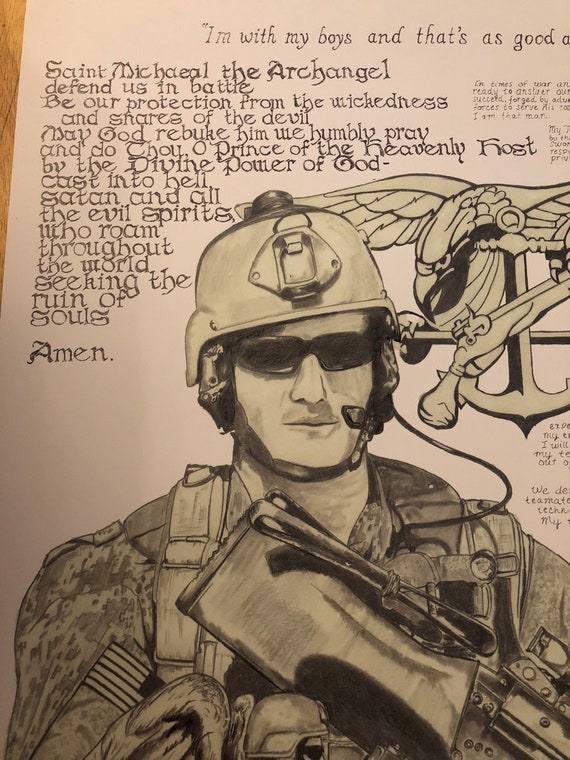 "Im with my boys and that's as good a
Saint Michaeal the Archangel
defend us in battle
Be our protection from the wickedness
and snares of the devil
May God rebuke him we humbly pray
and do Thou, O Prince of the Heavenly Host
by the Divine Power of God-
cast into hell
satan and all
the evil spirits,
who roam
throughout
the world
seeking the
ruin of
souls
Amen.
In times of war an
ready to answer our
succeed, forged by adve
forces to serve his
I am that man...
My T
by th
swor
resp
priv
expe
my e
I will
my te
our o
We de
teamate
techni
My t